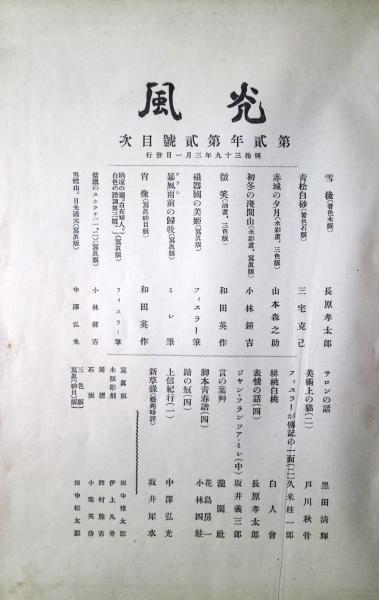 光風
第貳年第貳號目次
明治三十九年三月一日發行
雪後(著色木版) 長原孝太郎
青松白砂(著色石版) 三宅克己
赤城の夕月(水彩畫、三色版) 山本森之助
初冬の淺間山(水彩畫、寫眞版) 小林鍾吉
微笑(油畫、三色版) 和田英作
磁器國の美姫(寫眞版) フィスラー筆
暴風雨前の歸牧(寫眞版) ミレ筆
肖像(寫眞砂目版) 和田英作
白色の諧調第三號(寫眞版) フィスラー筆
信濃のスケッチ(一、二)(寫眞版) 小林鍾吉
男體山。日光湯元(寫眞版) 中澤弘光
サロンの話 黒田清輝
美術上の猫(二) 戸川秋骨
フィスラーが傳記の一面(二) 久米桂一郎
緋桃白桃 白人會
表情の話(四) 長原孝太郎
ジヤン、フランソア、ミレ(中) 坂井義三郎
言の葉艸 瀧園社
脚本青春譜(四) 花房一
蹄の痕(四) 小林四
上信紀行(一) 中澤弘光
新草錄(藝術時評) 坂井犀水
寫眞版 田中猪太郎
木版彫刻 伊上凡骨
同摺 西村熊吉
石版 小柴英侍
三色版 寫眞(砂目)版 田中松太郎